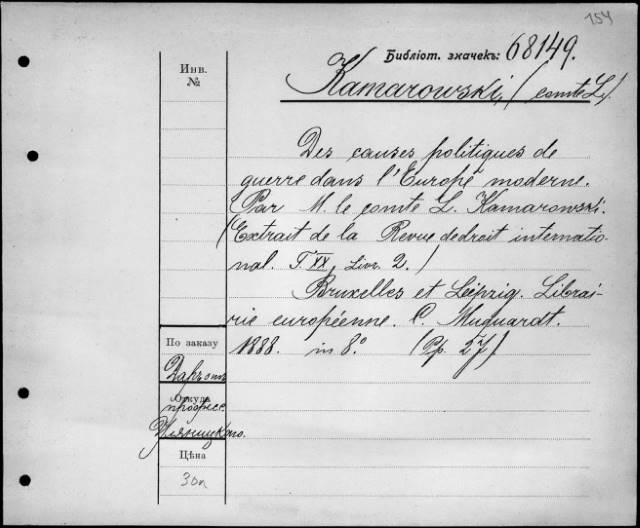 154
Библіот. значекъ: 68149.
Инв.
№
Kamarowski, (comte L.)
Des causes politiques de
guerre dans l'Europe moderne.
Par M. le comte L. Kamarowski.
(Extrait de la Revue de droit internatio-
nal. T. XX, Livr. 2.)
Bruxelles et Leipzig. Librai-
rie européenne. C. Muquardt.
1888. in 8.° (Pp. 27)
По заказу
Даръ отъ
Откуда
професс.
Ульяницкаго.
Цѣна
30к